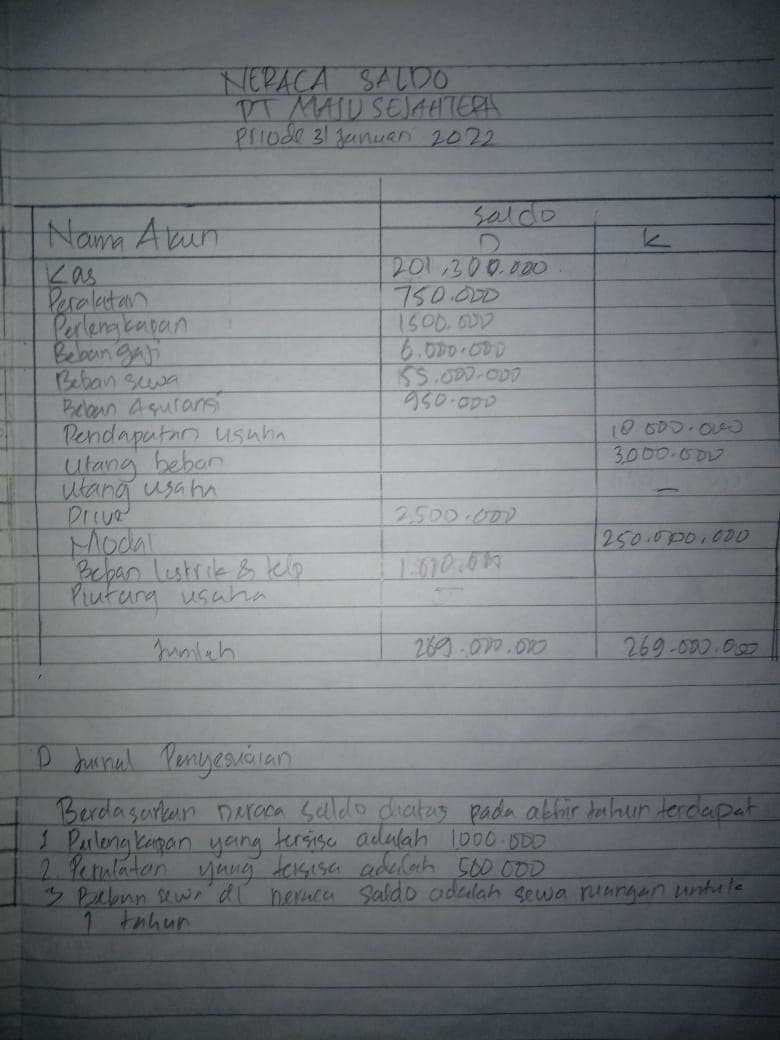 NERACA SALDO
PT MAJU SEJAHTERA
Priode 31 Januari 2022
Saldo
Nama Akun D K
Kas 201.300.000
Peralatan 750.000
Perlengkapan 1500.000
Beban gaji 6.000.000
Beban sewa 55.000.000
Beban Asuransi 950.000
Pendapatan usaha 10.000.000
Utang beban 3.000.000
Utang usaha —
Prive 2.500.000
Modal 250.000.000
Beban listrik & telp
Piutang usaha -
Jumlah 269.000.000 269.000.000
D Jurnal Penyesuaian
Berdasarkan neraca saldo diatas pada akhir tahun terdapat
1 Perlengkapan yang tersisa adalah 1000.000
2. Peralatan yang tersisa adalah 500 000
3 Beban sewa di neraca saldo adalah sewa ruangan untuk
1 tahun